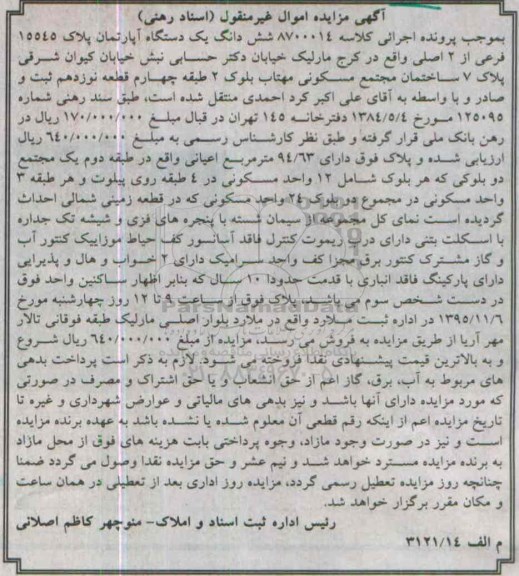 آگهی مزایده اموال غیرمنقول (اسناد رهنی)
بموجب پرونده اجرائی کلاسه ۸۷۰۰۰۱۴ شش دانگ یک دستگاه آپارتمان پلاک ۱۵۵۴۵
فرعی از ۲ اصلی واقع در کرج مارلیک خیابان دکتر حسابی نبش خیابان کیوان شرقی
پلاک ۷ ساختمان مجتمع مسکونی مهتاب بلوک ۲ طبقه چهارم قطعه نوزدهم ثبت و
صادر و با واسطه به آقای علی اکبر کرد احمدی منتقل شده است، طبق سند رهنی شماره
۱۲۵۰۹۵ مورخ ۱۳۸۴/۵/۴ دفترخانه ۱۴۵ تهران در قبال مبلغ ۱۷۰/۰۰۰/۰۰۰ ریال در
رهن بانک ملی قرار گرفته و طبق نظر کارشناس رسمی به مبلغ ۶۴۰/۰۰۰/۰۰۰ ریال
ارزیابی شده و پلاک فوق دارای ۹۴/۶۳ مترمربع اعیانی واقع در طبقه دوم یک مجتمع
دو بلوکی که هر بلوک شامل ۱۲ واحد مسکونی در ۴ طبقه روی پیلوت و هر طبقه ۳
واحد مسکونی در مجموع دو بلوک ۲۴ واحد مسکونی که در قطعه زمینی شمالی احداث
گردیده است نمای کل مجموعه از سیمان شسته با پنجره های فزی و شیشه تک جداره
با اسکلت بتنی دارای درب ریموت کنترل فاقد آسانسور کف حیاط موزاییک کنتور آب
و گاز مشترک کنتور برق مجزا کف واحد سرامیک دارای ۲ خواب و هال و پذیرایی
دارای پارکینگ فاقد انباری با قدمت حدودا ۱۰ سال که بنابر اظهار ساکنین واحد فوق
در دست شخص سوم می باشد، پلاک فوق از ساعت ۹ تا ۱۲ روز چهارشنبه مورخ
۱۳۹۵/۱۱/۶ در اداره ثبت ملارد واقع در ملارد بلوار اصلی مارلیک طبقه فوقانی تالار
مهر آریا از طریق مزایده به فروش می رسد، مزایده از مبلغ ۶۴۰/۰۰۰/۰۰۰ ریال شروع
و به بالاترین قیمت پیشنهادی نقدا فروخته می شود. لازم به ذکر است پرداخت بدهی
های مربوط به آب، برق، گاز اعم از حق انشعاب و یا حق اشتراک و مصرف در صورتی
که مورد مزایده دارای آنها باشد و نیز بدهی های مالیاتی و عوارض شهرداری و غیره تا
تاریخ مزایده اعم از اینکه رقم قطعی آن معلوم شده یا نشده باشد به عهده برنده مزایده
است و نیز در صورت وجود مازاد، وجوه پرداختی بابت هزینه های فوق از محل مازاد
به برنده مزایده مسترد خواهد شد و نیم عشر و حق مزایده نقدا وصول می گردد ضمنا
چنانچه روز مزایده تعطیل رسمی گردد، مزایده روز اداری بعد از تعطیلی در همان ساعت
و مکان مقرر برگزار خواهد شد.
رئیس اداره ثبت اسناد و املاک- منوچهر کاظم اصلانی
م الف ۳۱۲۱/۱۴